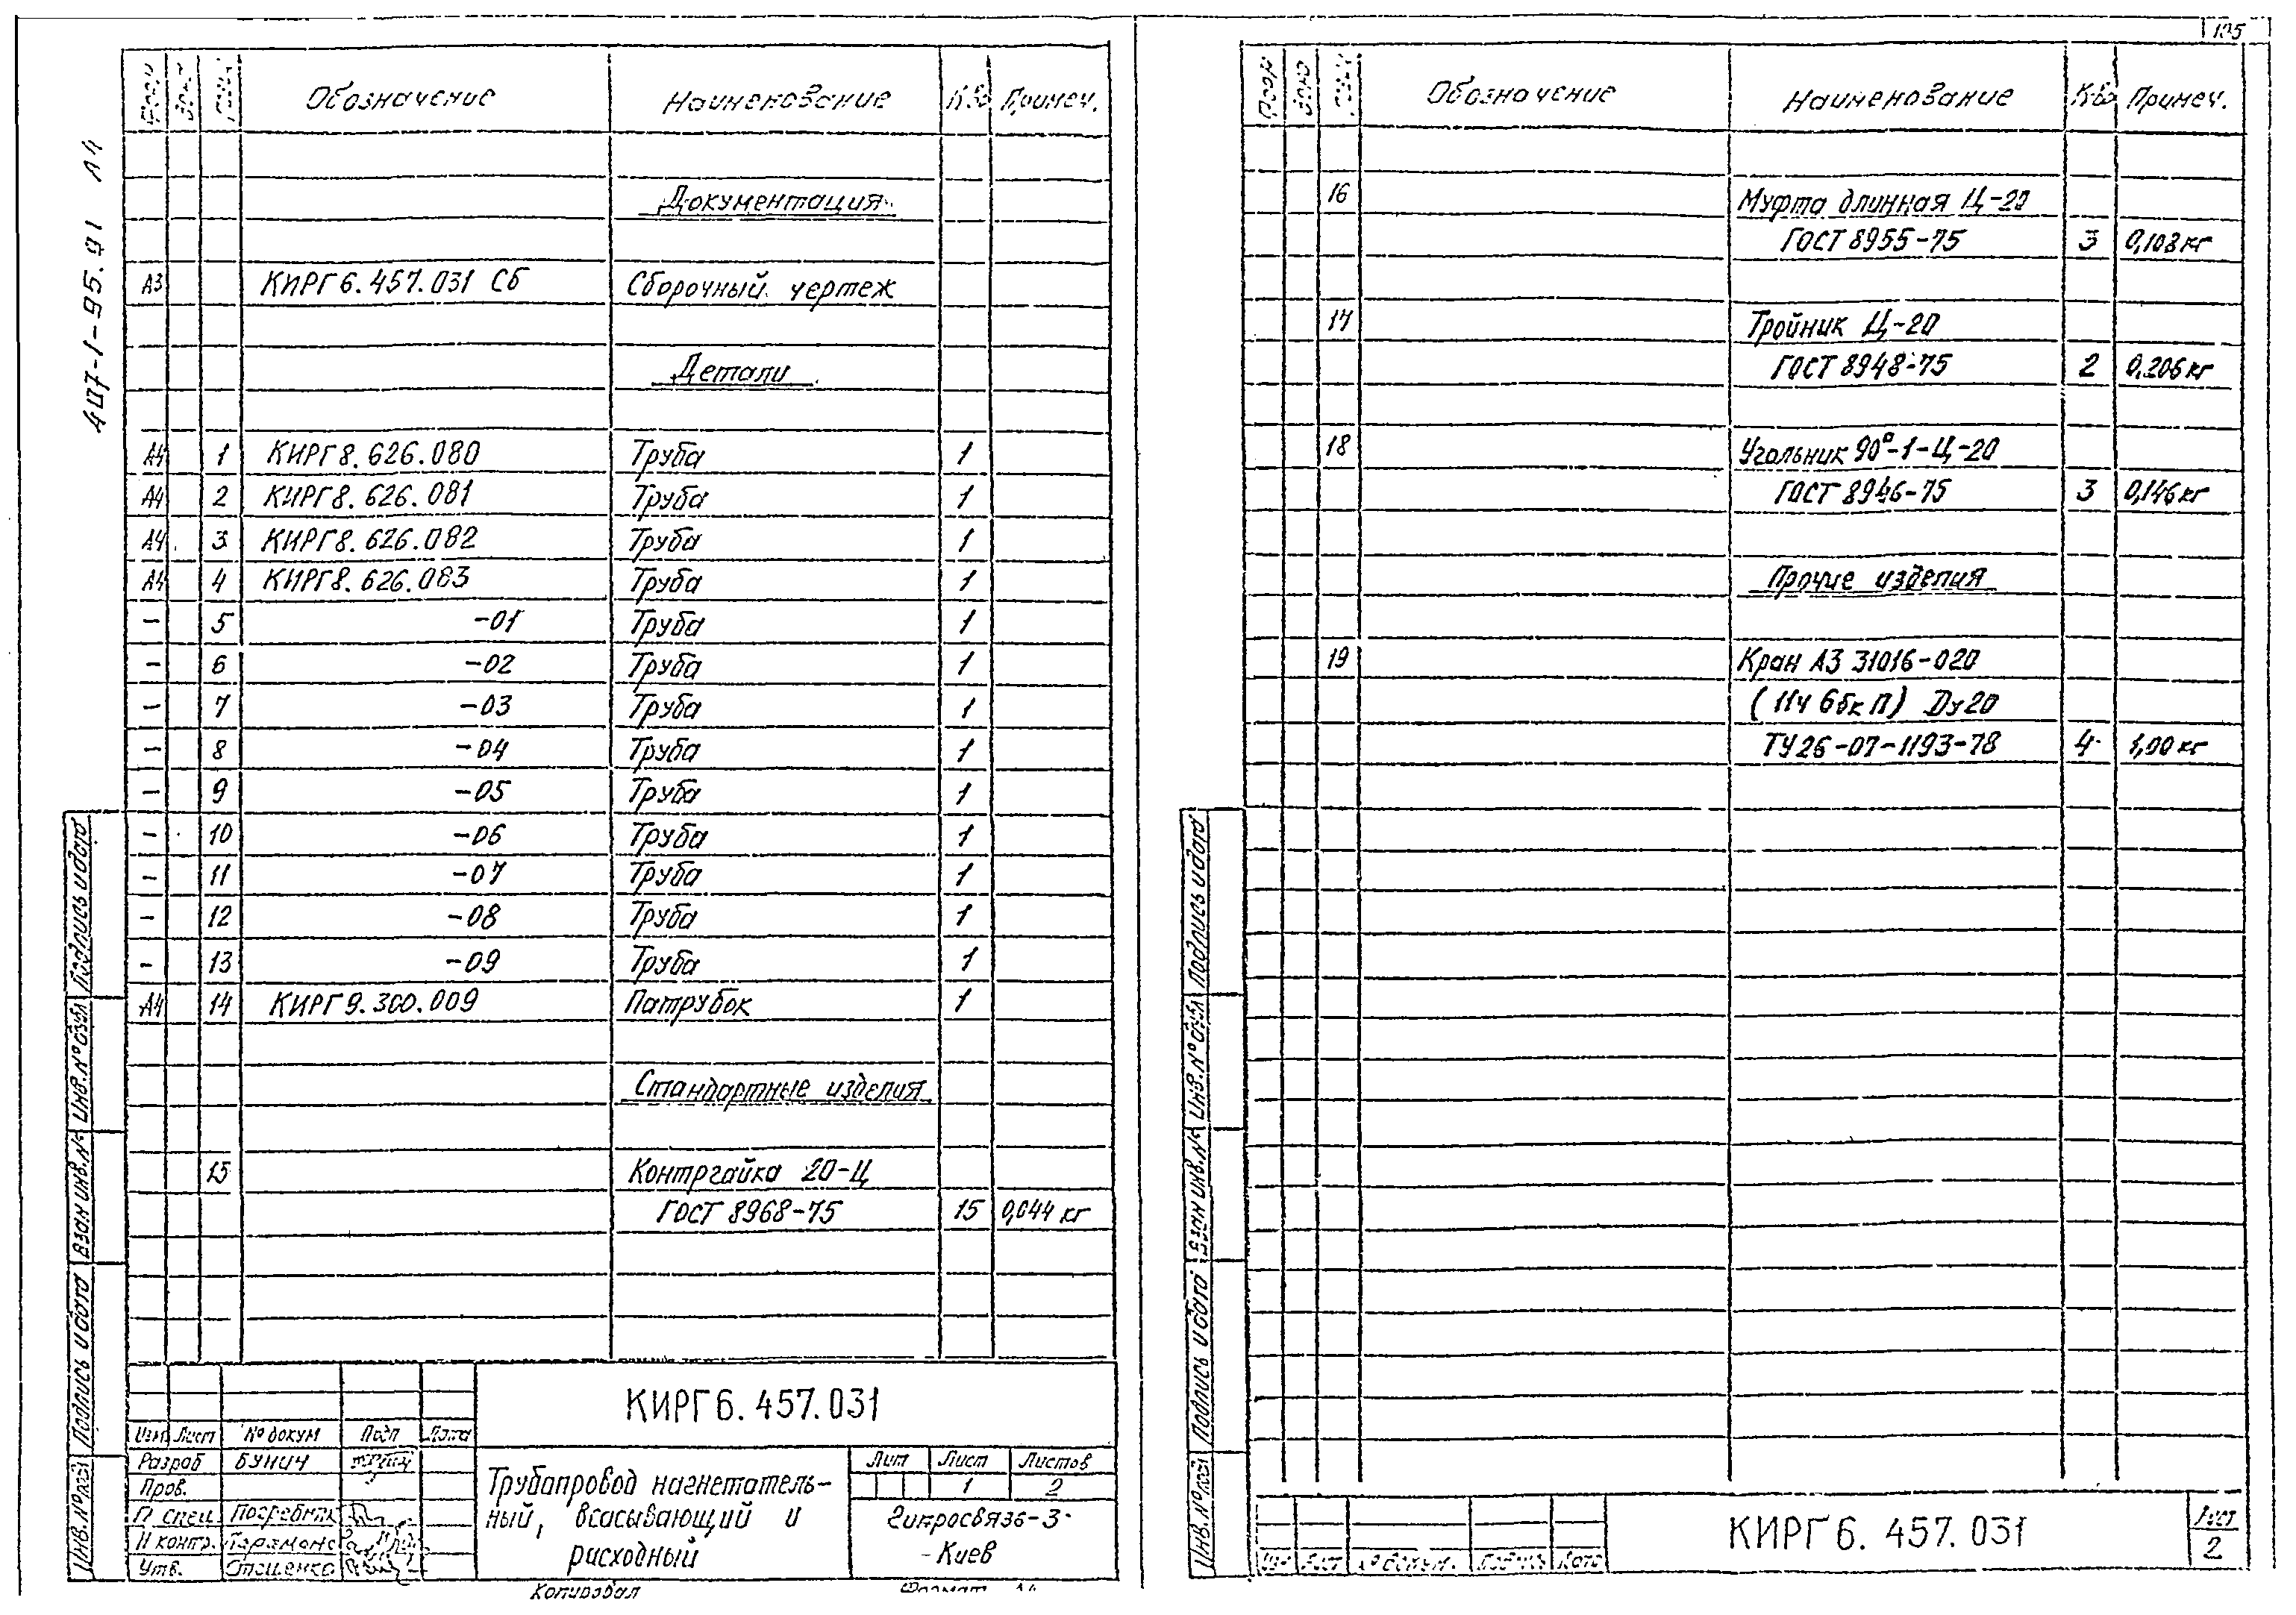 407-1-95.91 А4
Обозначение Наименование К-во Примеч.
Документация
А3 КИРГ6.457.031 Сб Сборочный чертеж
Детали
А4 1 КИРГ8.626.080 Труба 1
А4 2 КИРГ8.626.081 Труба 1
А4 3 КИРГ8.626.082 Труба 1
А4 4 КИРГ8.626.083 Труба 1
- 5 -01 Труба 1
- 6 -02 Труба 1
- 7 -03 Труба 1
- 8 -04 Труба 1
- 9 -05 Труба 1
- 10 -06 Труба 1
- 11 -07 Труба 1
- 12 -08 Труба 1
- 13 -09 Труба 1
А4 14 КИРГ9.300.009 Патрубок 1
Стандартные изделия
15 Контргайка 20-Ц
ГОСТ 8968-75 15 0,044 кг
Инв.№ подл Подпись и дата Взам инв.№ Инв.№ дубл Подпись и дата
КИРГ6.457.031
Изм Лист № докум Подп Дата
Разраб Бунич
Пров.
Н контр.
Утв. Стаценко
Трубопровод нагнетатель-
ный, всасывающий и
расходный
Лит Лист Листов
1 2
Гипросвязь-3
-Киев
Копировал Формат А4
105
Обозначение Наименование К-во Примеч.
16 Муфта длинная Ц-20
ГОСТ 8955-75 3 0,108 кг
17 Тройник Ц-20
ГОСТ 8948-75 2 0,206 кг
18 Угольник 90°-1-Ц-20
ГОСТ 8946-75 3 0,146 кг
Прочие изделия
19 Кран А3 31016-020
(11ч 6бк П) Ду20
ТУ26-07-1193-78 4 1,00 кг
Инв.№ подл Подпись и дата Взам инв.№ Инв.№ дубл Подпись и дата
Лист № докум. Подпись Дата
КИРГ6.457.031
Лист
2